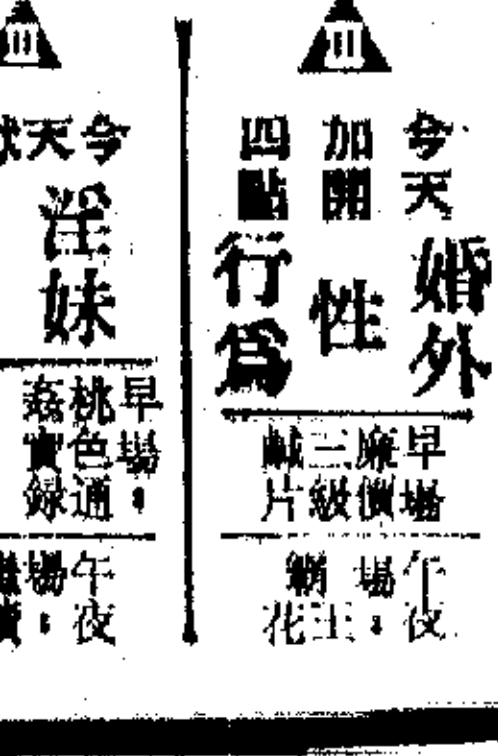 III
今天
加開
四點
婚外
性
行爲
早場
廉價
三級
鹹片
午夜場：
III
今天
淫妹
早場：
桃色通
姦實錄
午夜場：